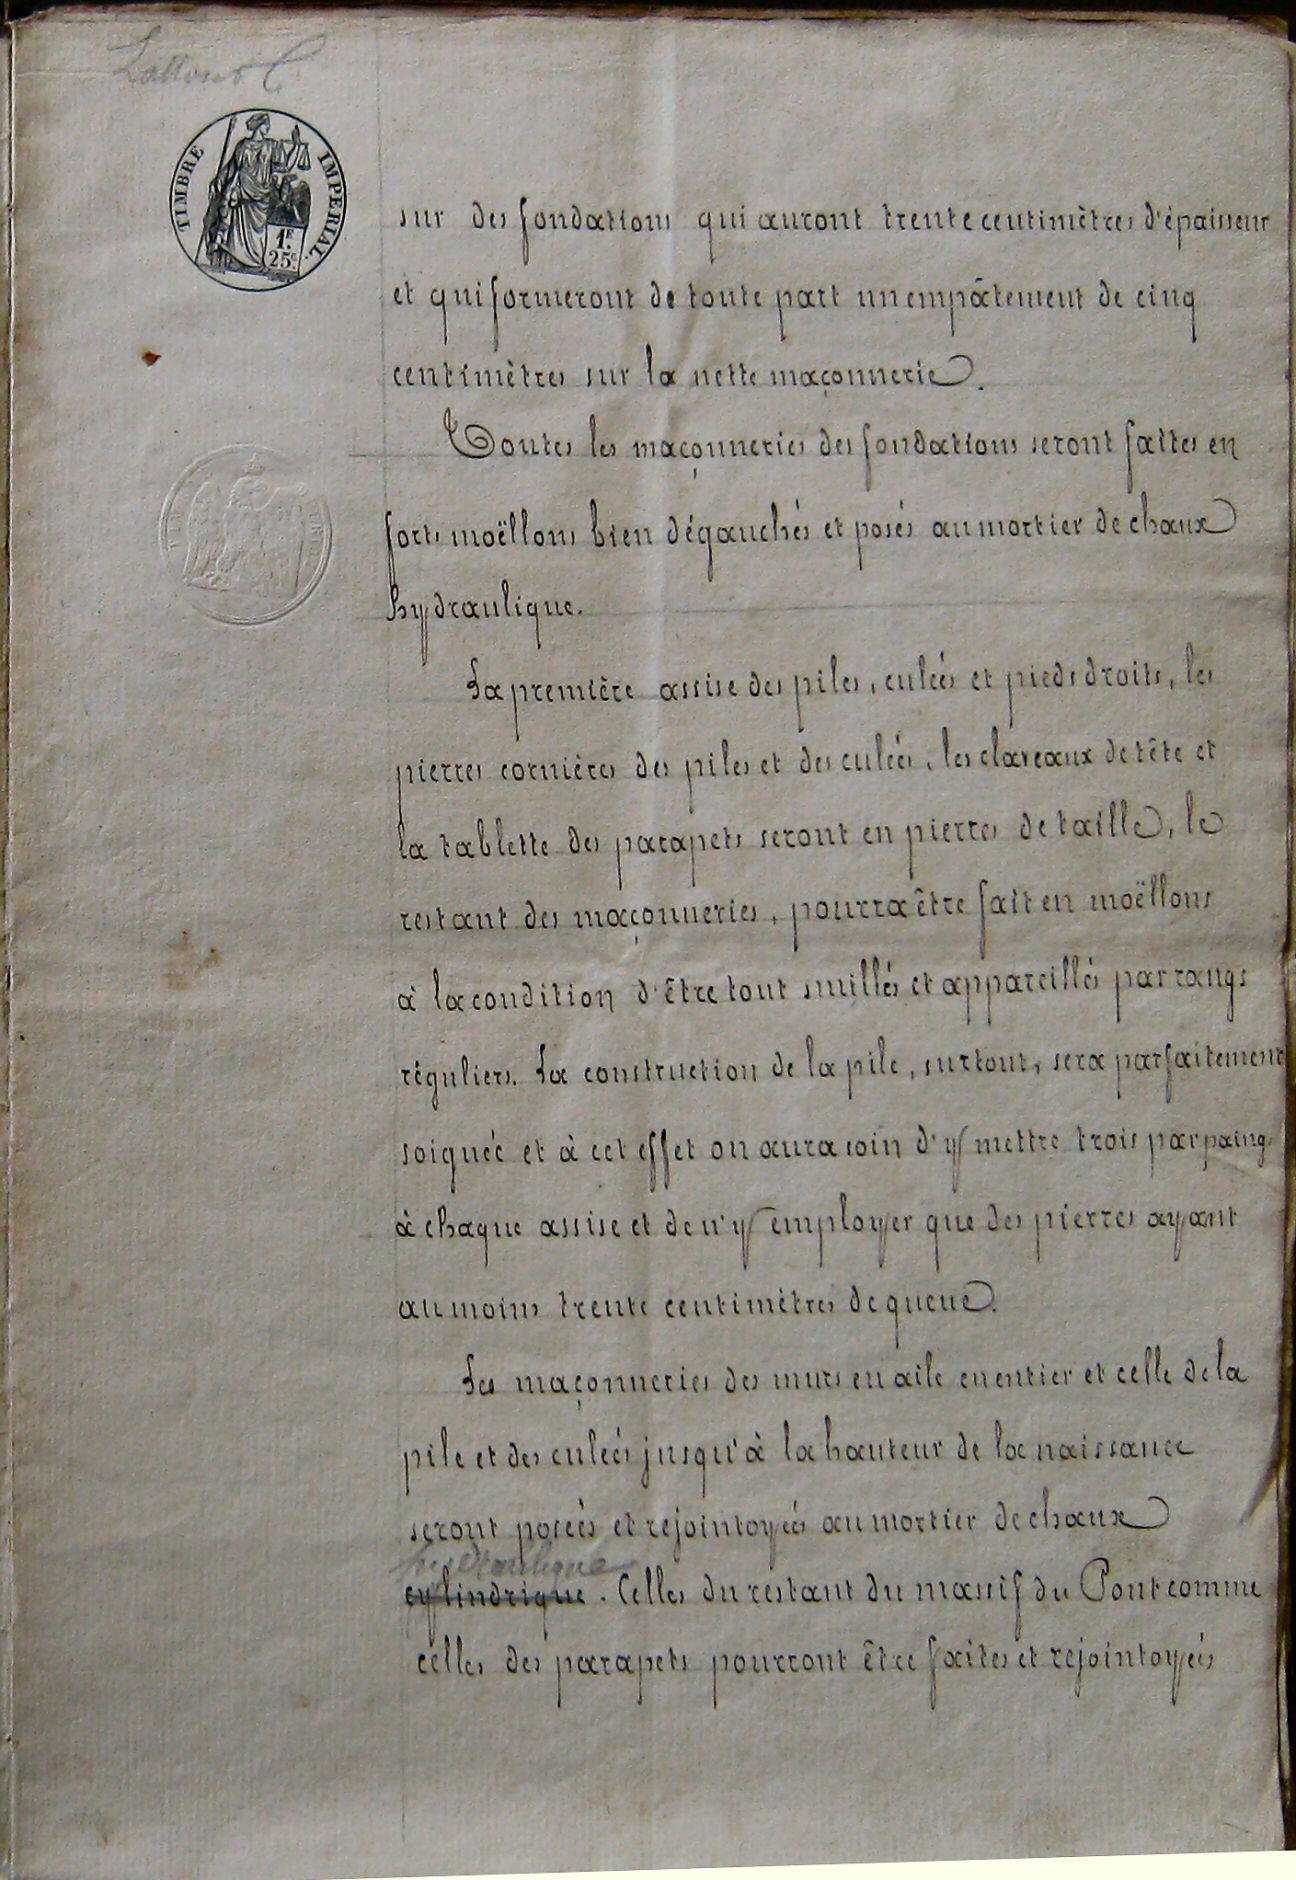 TIMBRE IMPERIAL
1F.
25c.
sur des fondations qui auront trente centimètres d'épaisseur
et qui formeront de toute part un empâtement de cinq
centimètres sur la nette maçonnerie.
Toutes les maçonneries des fondations seront faites en
forts moëllons bien dégauchés et posés au mortier de chaux
hydraulique.
La première assise des piles, culées et pieds droits, les
pierres cornières des piles et des culées, les claveaux de tête et
la tablette des parapets seront en pierres de taille, le
restant des maçonneries, pourra être fait en moëllons
à la condition d'être tout smillés et appareillés par rangs
réguliers. La construction de la pile, surtout, sera parfaitement
soignée et à cet effet on aura soin d'y mettre trois parpaings
à chaque assise et de n'y employer que des pierres ayant
au moins trente centimètres de queue.
Les maçonneries des murs en aile en entier et celle de la
pile et des culées jusqu'à la hauteur de la naissance
seront posées et rejointoyées au mortier de chaux
hydraulique
cylindrique. Celles du restant du massif du Pont comme
celles des parapets pourront être faites et rejointoyées